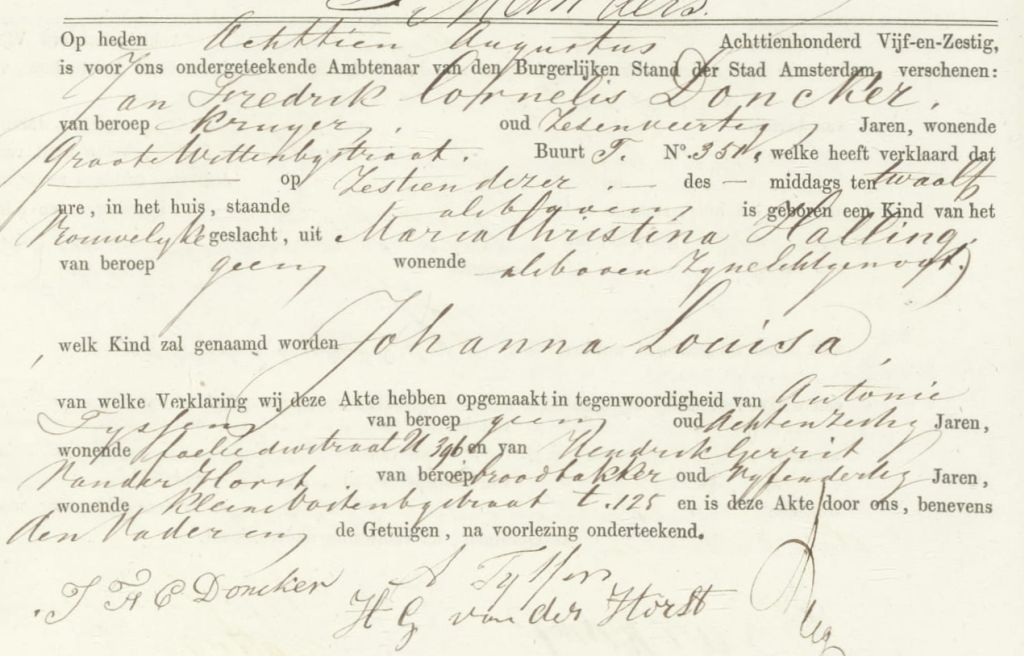 Manders.
Op heden Achttien Augustus Achttienhonderd Vijf-en-Zestig,
is voor ons ondergeteekende Ambtenaar van den Burgerlijken Stand der Stad Amsterdam, verschenen:
Jan Fredrik Cornelis Doncker,
van beroep Kruyer, oud Zesenveertig Jaren, wonende
Groote Wittenbgstraat. Buurt T. No. 351, welke heeft verklaard dat
op Zestien dezer. — des — middags ten twaalf
ure, in het huis, staande als boven is geboren een Kind van het
Vrouwelyke geslacht, uit Maria Christina Halling,
van beroep geen wonende als boven Zyne Echtgenoot.
welk Kind zal genaamd worden Johanna Louisa,
van welke Verklaring wij deze Akte hebben opgemaakt in tegenwoordigheid van Antonie
Tyssen van beroep geen oud Achtenzestig Jaren,
wonende U 396 en van Hendrik Gerrit
van der Horst van beroep oud Vyfendertig Jaren,
wonende kleine T. 125 en is deze Akte door ons, benevens
den Vader en de Getuigen, na voorlezing onderteekend.
J F C Doncker A Tyssen
H G van der Horst